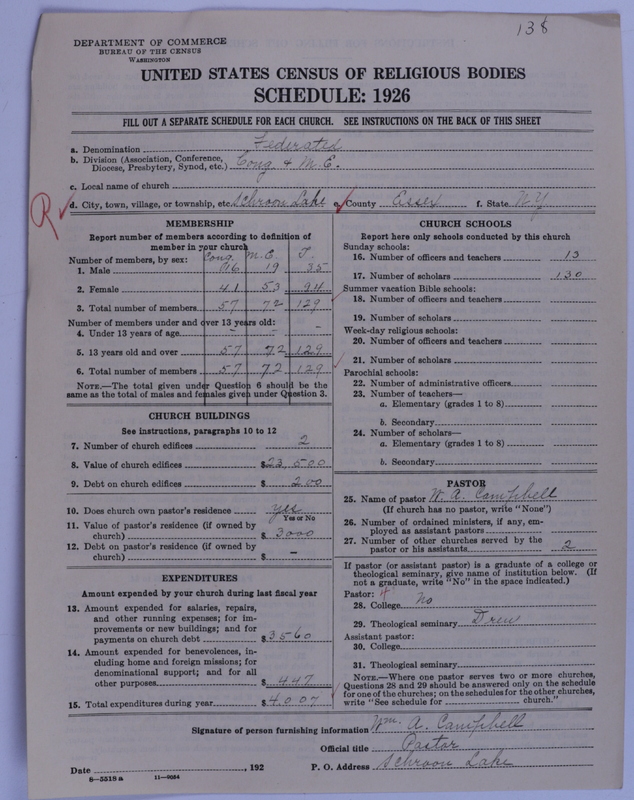 138
DEPARTMENT OF COMMERCE
BUREAU OF THE CENSUS
WASHINGTON
UNITED STATES CENSUS OF RELIGIOUS BODIES
SCHEDULE: 1926
FILL OUT A SEPARATE SCHEDULE FOR EACH CHURCH. SEE INSTRUCTIONS ON THE BACK OF THIS SHEET
a. Denomination Federated
b. Division (Association, Conference, Diocese, Presbytery, Synod, etc.) Cong & M.E.
c. Local name of church
R
d. City, town, village, or township, etc. Schroon Lake e. County Essex f. State N.Y
MEMBERSHIP
Report number of members according to definition of
member in your church
Number of members, by sex: Cong. M.E. T.
1. Male 16 19 35
2. Female 41 53 94
3. Total number of members 57 72 129
Number of members under and over 13 years old:
4. Under 13 years of age - - -
5. 13 years old and over 57 72 129
6. Total number of members 57 72 129
NOTE.—The total given under Question 6 should be the
same as the total of males and females given under Question 3.
CHURCH BUILDINGS
See instructions, paragraphs 10 to 12
7. Number of church edifices 2
8. Value of church edifices $23,500
9. Debt on church edifices $200
10. Does church own pastor's residence Yes
Yes or No
11. Value of pastor's residence (if owned by
church) $3000
12. Debt on pastor's residence (if owned by
church) $ -
EXPENDITURES
Amount expended by your church during last fiscal year
13. Amount expended for salaries, repairs,
and other running expenses; for im-
provements or new buildings; and for
payments on church debt $3560
14. Amount expended for benevolences, in-
cluding home and foreign missions; for
denominational support; and for all
other purposes $447
15. Total expenditures during year $4,007
CHURCH SCHOOLS
Report here only schools conducted by this church
Sunday schools:
16. Number of officers and teachers 13
17. Number of scholars 130
Summer vacation Bible schools:
18. Number of officers and teachers
19. Number of scholars
Week-day religious schools:
20. Number of officers and teachers
21. Number of scholars
Parochial schools:
22. Number of administrative officers
23. Number of teachers—
a. Elementary (grades 1 to 8)
b. Secondary
24. Number of scholars—
a. Elementary (grades 1 to 8)
b. Secondary
PASTOR
25. Name of pastor W. A. Campbell
(If church has no pastor, write "None")
26. Number of ordained ministers, if any, em-
ployed as assistant pastors
27. Number of other churches served by the
pastor or his assistants 2
If pastor (or assistant pastor) is a graduate of a college or
theological seminary, give name of institution below. (If
not a graduate, write "No" in the space indicated.)
Pastor: 4
28. College No
29. Theological seminary Drew
Assistant pastor:
30. College
31. Theological seminary
NOTE.—Where one pastor serves two or more churches,
Questions 28 and 29 should be answered only on the schedule
for one of the churches; on the schedules for the other churches,
write "See schedule for church."
Signature of person furnishing information Wm. A. Campbell
Official title Pastor
Date , 192 P. O. Address Schroon Lake
8—5518a 11—9034